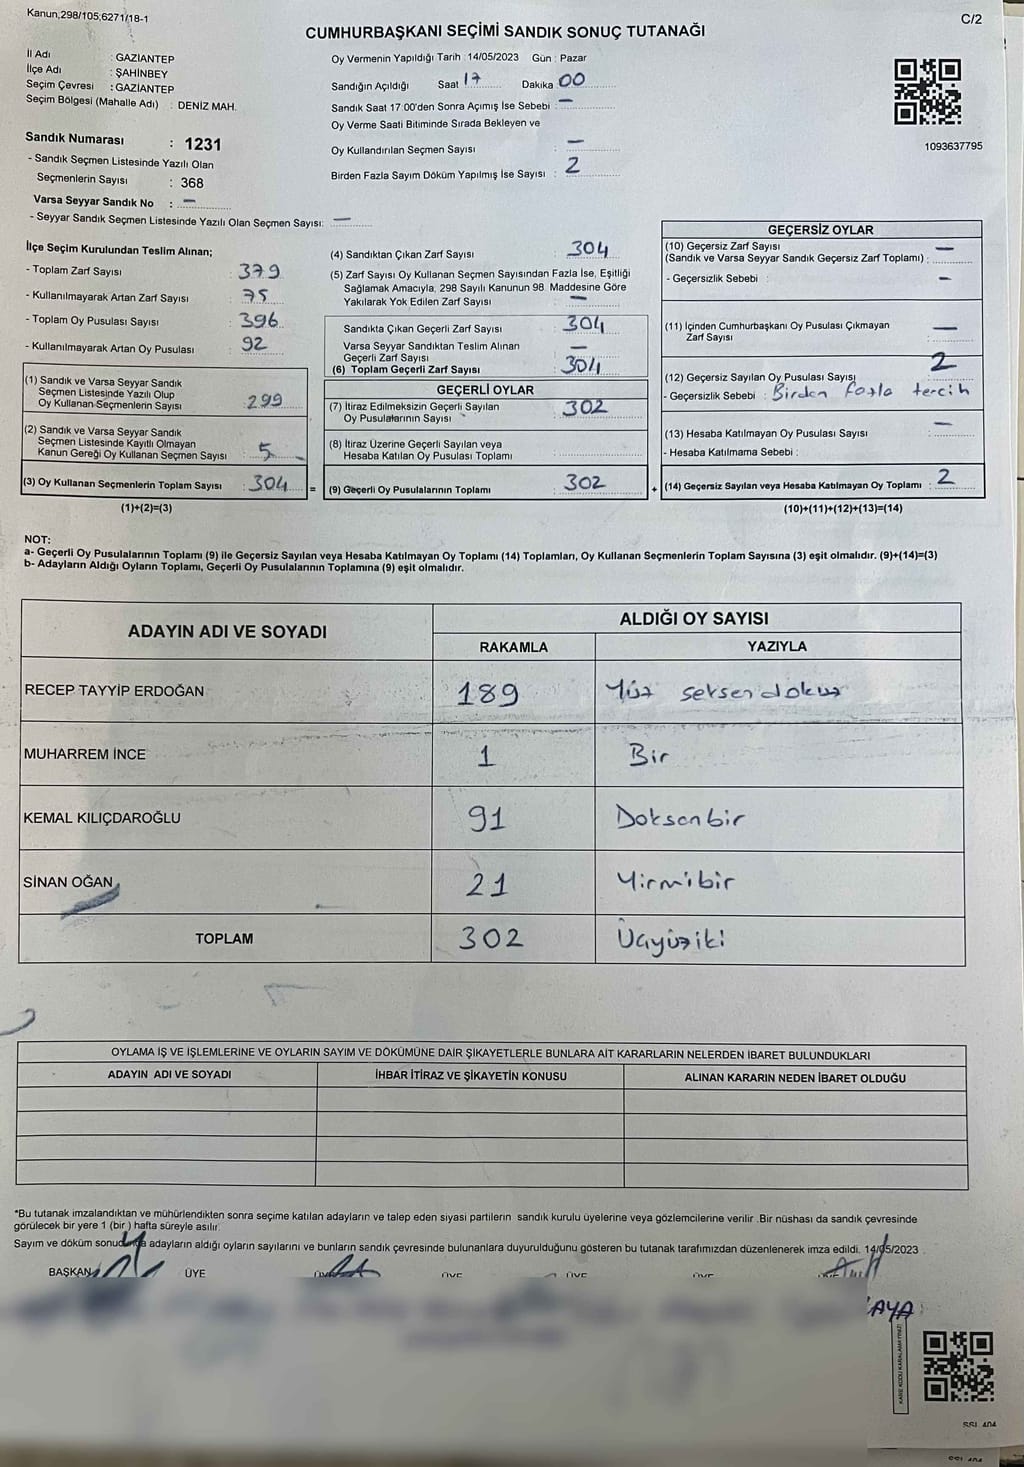 Kanun,298/105,6271/18-1
C/2
CUMHURBAŞKANI SEÇİMİ SANDIK SONUÇ TUTANAĞI
İl Adı : GAZİANTEP
İlçe Adı : ŞAHİNBEY
Seçim Çevresi : GAZİANTEP
Seçim Bölgesi (Mahalle Adı) : DENİZ MAH.
Oy Vermenin Yapıldığı Tarih : 14/05/2023 Gün : Pazar
Sandığın Açıldığı Saat 17 Dakika 00
Sandık Saat 17:00'den Sonra Açımış İse Sebebi : —
Oy Verme Saati Bitiminde Sırada Bekleyen ve
Oy Kullandırılan Seçmen Sayısı : —
Birden Fazla Sayım Döküm Yapılmış İse Sayısı : 2
1093637795
Sandık Numarası : 1231
- Sandık Seçmen Listesinde Yazılı Olan
Seçmenlerin Sayısı : 368
Varsa Seyyar Sandık No : —
- Seyyar Sandık Seçmen Listesinde Yazılı Olan Seçmen Sayısı: —
İlçe Seçim Kurulundan Teslim Alınan;
- Toplam Zarf Sayısı : 379
- Kullanılmayarak Artan Zarf Sayısı : 75
- Toplam Oy Pusulası Sayısı : 396
- Kullanılmayarak Artan Oy Pusulası : 92
(1) Sandık ve Varsa Seyyar Sandık
Seçmen Listesinde Yazılı Olup
Oy Kullanan Seçmenlerin Sayısı : 299
(2) Sandık ve Varsa Seyyar Sandık
Seçmen Listesinde Kayıtlı Olmayan
Kanun Gereği Oy Kullanan Seçmen Sayısı : 5
(3) Oy Kullanan Seçmenlerin Toplam Sayısı : 304 =
(1)+(2)=(3)
(4) Sandıktan Çıkan Zarf Sayısı : 304
(5) Zarf Sayısı Oy Kullanan Seçmen Sayısından Fazla İse, Eşitliği
Sağlamak Amacıyla, 298 Sayılı Kanunun 98. Maddesine Göre
Yakılarak Yok Edilen Zarf Sayısı : —
Sandıkta Çıkan Geçerli Zarf Sayısı : 304
Varsa Seyyar Sandıktan Teslim Alınan
Geçerli Zarf Sayısı : —
(6) Toplam Geçerli Zarf Sayısı : 304
GEÇERLİ OYLAR
(7) İtiraz Edilmeksizin Geçerli Sayılan
Oy Pusulalarının Sayısı : 302
(8) İtiraz Üzerine Geçerli Sayılan veya
Hesaba Katılan Oy Pusulası Toplamı :
(9) Geçerli Oy Pusulalarının Toplamı : 302 +
GEÇERSİZ OYLAR
(10) Geçersiz Zarf Sayısı
(Sandık ve Varsa Seyyar Sandık Geçersiz Zarf Toplamı) : —
- Geçersizlik Sebebi : —
(11) İçinden Cumhurbaşkanı Oy Pusulası Çıkmayan
Zarf Sayısı : —
(12) Geçersiz Sayılan Oy Pusulası Sayısı : 2
- Geçersizlik Sebebi : Birden fazla tercih
(13) Hesaba Katılmayan Oy Pusulası Sayısı : —
- Hesaba Katılmama Sebebi :
(14) Geçersiz Sayılan veya Hesaba Katılmayan Oy Toplamı : 2
(10)+(11)+(12)+(13)=(14)
NOT:
a- Geçerli Oy Pusulalarının Toplamı (9) ile Geçersiz Sayılan veya Hesaba Katılmayan Oy Toplamı (14) Toplamları, Oy Kullanan Seçmenlerin Toplam Sayısına (3) eşit olmalıdır. (9)+(14)=(3)
b- Adayların Aldığı Oyların Toplamı, Geçerli Oy Pusulalarının Toplamına (9) eşit olmalıdır.
ADAYIN ADI VE SOYADI
ALDIĞI OY SAYISI
RAKAMLA YAZIYLA
RECEP TAYYİP ERDOĞAN 189 Yüz seksen dokuz
MUHARREM İNCE 1 Bir
KEMAL KILIÇDAROĞLU 91 Doksanbir
SİNAN OĞAN 21 Yirmibir
TOPLAM 302 Üçyüziki
OYLAMA İŞ VE İŞLEMLERİNE VE OYLARIN SAYIM VE DÖKÜMÜNE DAİR ŞİKAYETLERLE BUNLARA AİT KARARLARIN NELERDEN İBARET BULUNDUKLARI
ADAYIN ADI VE SOYADI İHBAR İTİRAZ VE ŞİKAYETİN KONUSU ALINAN KARARIN NEDEN İBARET OLDUĞU
*Bu tutanak imzalandıktan ve mühürlendikten sonra seçime katılan adayların ve talep eden siyasi partilerin sandık kurulu üyelerine veya gözlemcilerine verilir .Bir nüshası da sandık çevresinde
görülecek bir yere 1 (bir ) hafta süreyle asılır.
Sayım ve döküm sonucunda adayların aldığı oyların sayılarını ve bunların sandık çevresinde bulunanlara duyurulduğunu gösteren bu tutanak tarafımızdan düzenlenerek imza edildi. 14/05/2023 .
BAŞKAN ÜYE ÜYE ÜYE ÜYE ÜYE ÜYE
AYA
KARE KODU KARALAMAYINIZ!
SSI 404